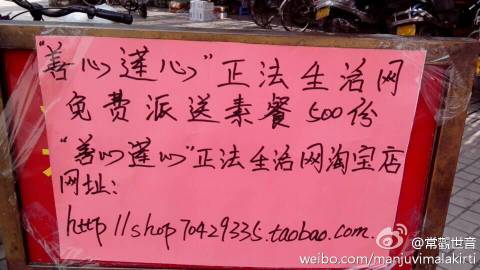 “善心莲心”正法生活网
免费派送素餐500份
“善心莲心”正法生活网淘宝店
网址：
http://shop70429335.taobao.com.
@常觀世音
weibo.com/manjuvimalakirti